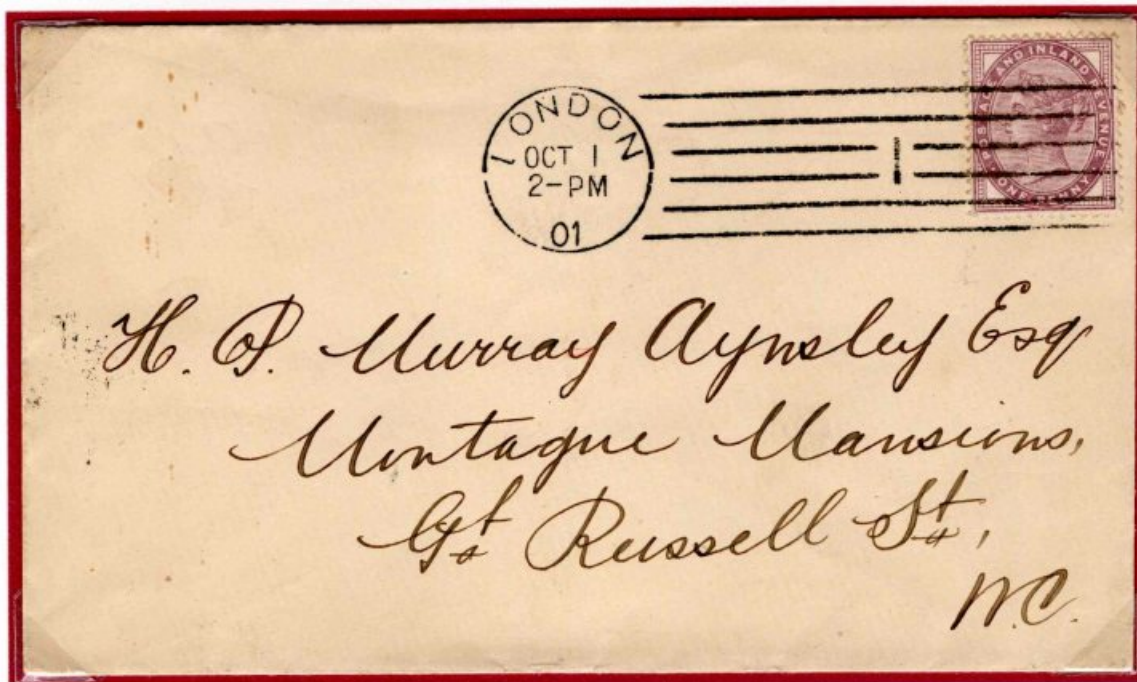 LONDON
OCT 1
2-PM
01
1
POSTAGE AND INLAND REVENUE
ONE PENNY
H. P. Murray Aynsley Esq
Montague Mansions,
Gt Russell St,
W.C.